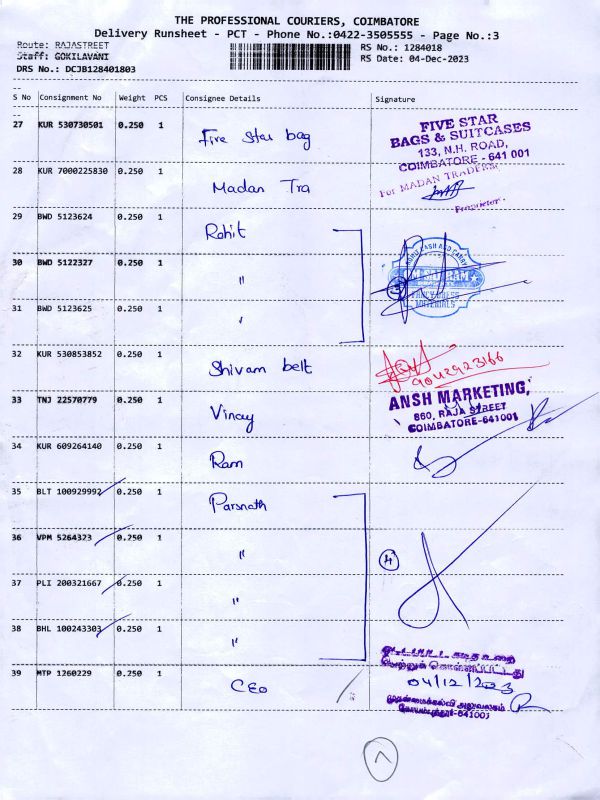 THE PROFESSIONAL COURIERS, COIMBATORE
Delivery Runsheet - PCT - Phone No.:0422-3505555 - Page No.:3
Route: RAJASTREET
Staff: GOKILAVANI
DRS No.: DCJB128401803
RS No.: 1284018
RS Date: 04-Dec-2023
S No Consignment No Weight PCS Consignee Details Signature
27 KUR 530730501 0.250 1 Five Star bag
FIVE STAR
BAGS & SUITCASES
133, N.H. ROAD,
COIMBATORE - 641 001
28 KUR 7000225830 0.250 1 Madan Tra
For MADAN TRADERS
Proprietor.
29 BWD 5123624 0.250 1 Rohit
30 BWD 5122327 0.250 1 "
31 BWD 5123625 0.250 1 "
CASH AND CARRY
FANCY DRESS
MATERIALS
32 KUR 530853852 0.250 1 Shivam belt
33 TNJ 22570779 0.250 1 Vinay
ANSH MARKETING,
860, RAJA STREET
COIMBATORE-641001
34 KUR 609264140 0.250 1 Ram
35 BLT 100929992 0.250 1 Parsnath
36 VPM 5264323 0.250 1 "
4
37 PLI 200321667 0.250 1 "
38 BHL 100243303 0.250 1 "
39 MTP 1260229 0.250 1 CEO
பெற்றுக் கொள்ளப்பட்டது
04/12/2023
முதன்மைக்கல்வி அலுவலகம்
கோயம்புத்தூர்-641001